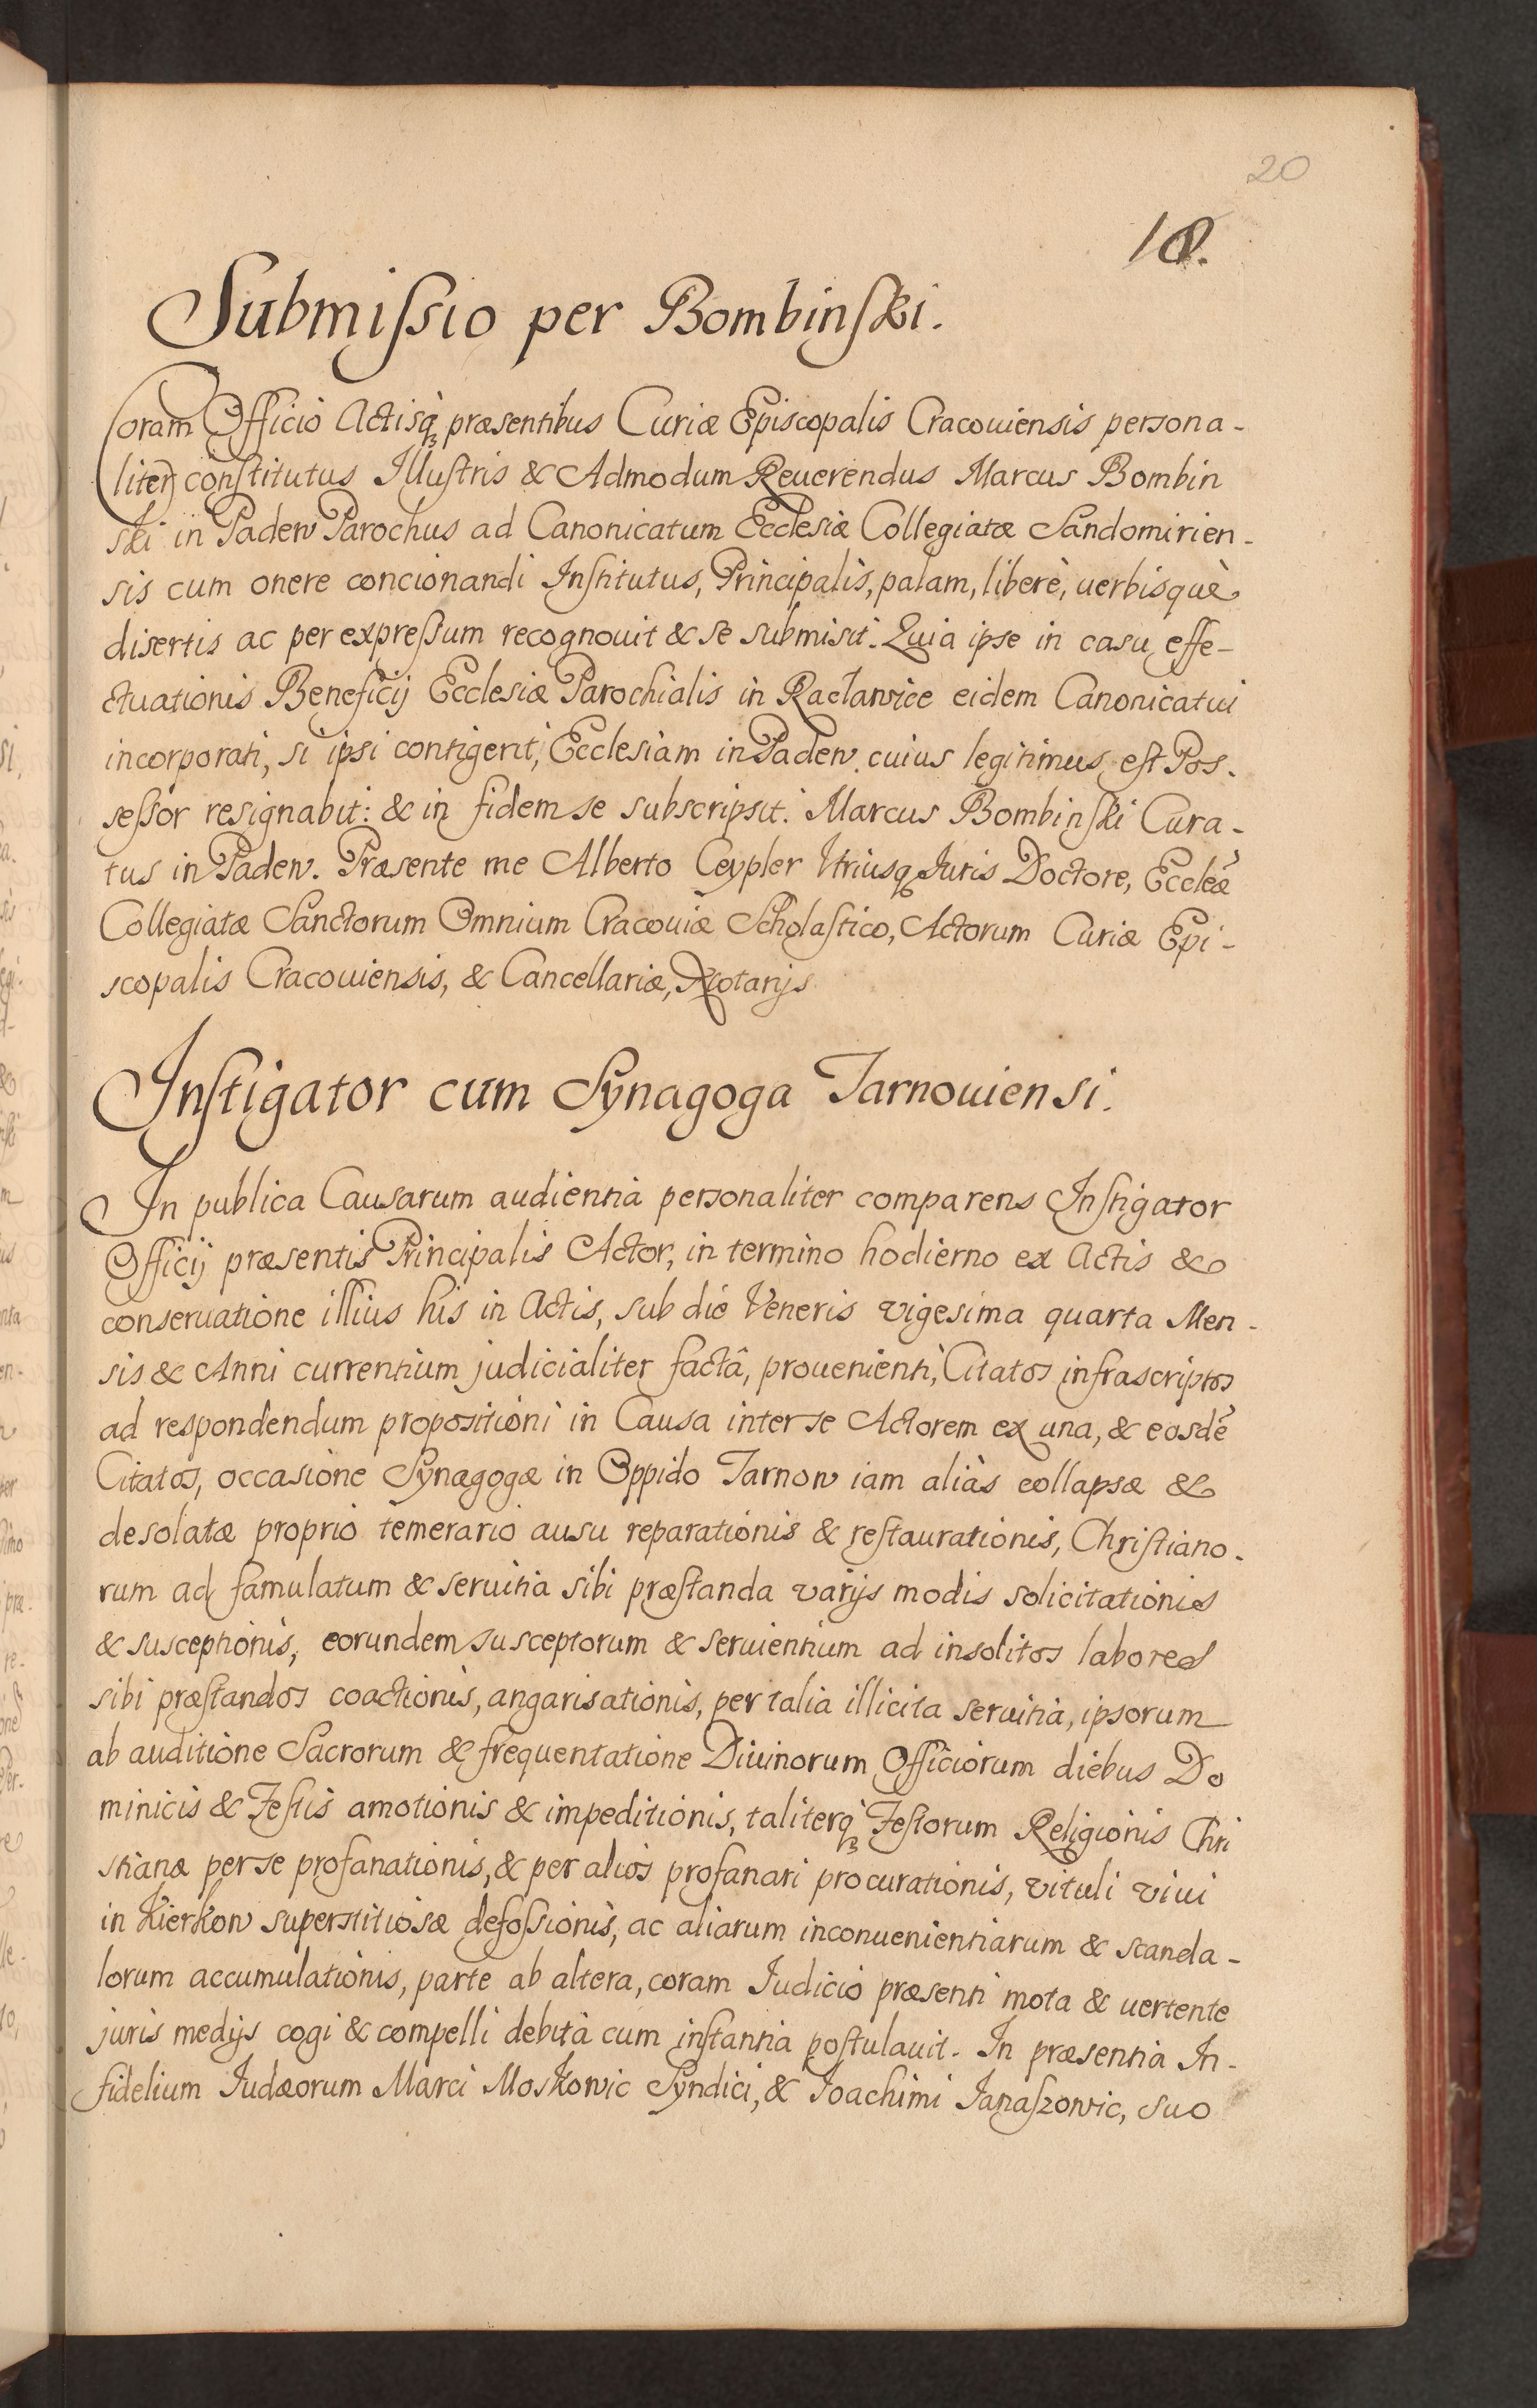 20
18.
Submiſsio per Bombinſki.
Coram Officio Actisq́ꝫ præsentibus Curiæ Episcopalis Cracouiensis persona-
liter constitutus Illuſtris & Admodum Reuerendus Marcus Bombin
ski in Padew Parochus ad Canonicatum Ecclesiæ Collegiatæ Sandomirien-
sis cum onere concionandi Inſtitutus, Principalis, palam, liberè, uerbisquè
disertis ac per expreſsum recognouit & se submisit. Quia ipse in casu effe-
ctuationis Beneficij Ecclesiæ Parochialis in Racławice eidem Canonicatui
incorporati, si ipsi contigerit, Ecclesiam in Padew cuius legitimus eſt Pos-
seſsor resignabit: & in fidem se subscripsit. Marcus Bombinſki Cura-
tus in Padew. Præsente me Alberto Ceypler Vtriusqꝫ Iuris Doctore, Eccleæ̃
Collegiatæ Sanctorum Omnium Cracouiæ Scholaſtico, Actorum Curiæ Epi-
scopalis Cracouiensis, & Cancellariæ, Notarijs
Inſtigator cum Synagoga Tarnouiensi.
In publica Causarum audientia personaliter comparens Inſtigator
Officij præsentis Principalis Actor, in termino hodierno ex Actis &
conseruatione illius his in Actis, sub die Veneris vigesima quarta Men-
sis & Anni currentium judicialiter factâ, prouenienti, Citatos infrascriptos
ad respondendum propositioni in Causa inter se Actorem ex una, & eosdẽ
Citatos, occasione Synagogæ in Oppido Tarnow iam aliàs collapsæ &
desolatæ proprio temerario ausu reparationis & reſtaurationis, Chriſtiano-
rum ad famulatum & seruitia sibi præſtanda varijs modis solicitationis
& susceptionis, eorundem susceptorum & seruientium ad insolitos labores
sibi præſtandos coactionis, angarisationis, per talia illicita seruitia, ipsorum
ab auditione Sacrorum & frequentatione Diuinorum Officiorum diebus Do
minicis & Feſtis amotionis & impeditionis, taliterq́ꝫ Feſtorum Religionis Chri
stianæ per se profanationis, & per alios profanari procurationis, vituli viui
in Kierkow superstitiosæ defoſsionis, ac aliarum inconuenientiarum & scanda-
lorum accumulationis, parte ab altera, coram Iudicio præsenti mota & uertente
juris medijs cogi & compelli debità cum inſtantia poſtulauit. In præsentia In-
fidelium Iudæorum Marci Moskowic Syndici, & Ioachimi Ianaſzowic, suo